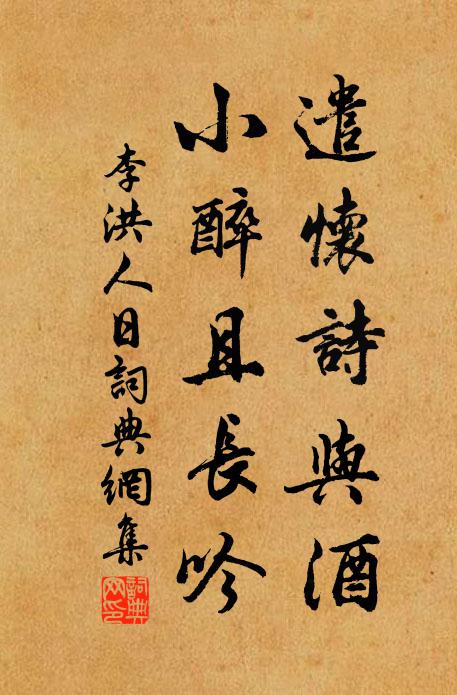 遣懷詩與酒
小醉且長吟
李洪人日詞典網集
詞典网印